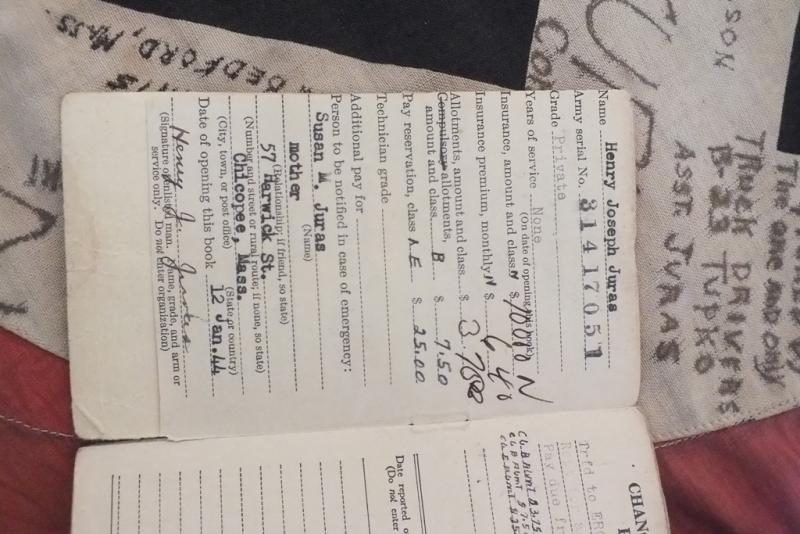 Name Henry Joseph Juras
Army serial No. 31417051
Grade Private
Years of service None
(On date of opening this book)
Insurance, amount and class N $ 10000 N
Insurance premium, monthly N $ 6.40
Allotments, amount and class $
Compulsory allotments,
amount and class B $ 7.50
Pay reservation, class A E $ 25.00
Technician grade
Additional pay for
Person to be notified in case of emergency:
Susan M. Juras
(Name)
mother
(Relationship; if friend, so state)
57 Harwick St.
(Number and street or rural route; if none, so state)
Chicopee, Mass.
(City, town, or post office) (State or country)
Date of opening this book 12 Jan. 44
Henry J. Juras
(Signature of enlisted man. Name, grade, and arm or
service only. Do not enter organization)
CHAN
Trfd to ERC
Pay due fr
CL. B ALMT $3.75
CL. B ALMT $7.5
CL. E ALMT $25
Date reported o
(Do not enter
BEDFORD, MASS.
SON
CO
THE ONE AND ONLY
TRUCK DRIVERS
B-23 TUDXO
ASSE JURAS